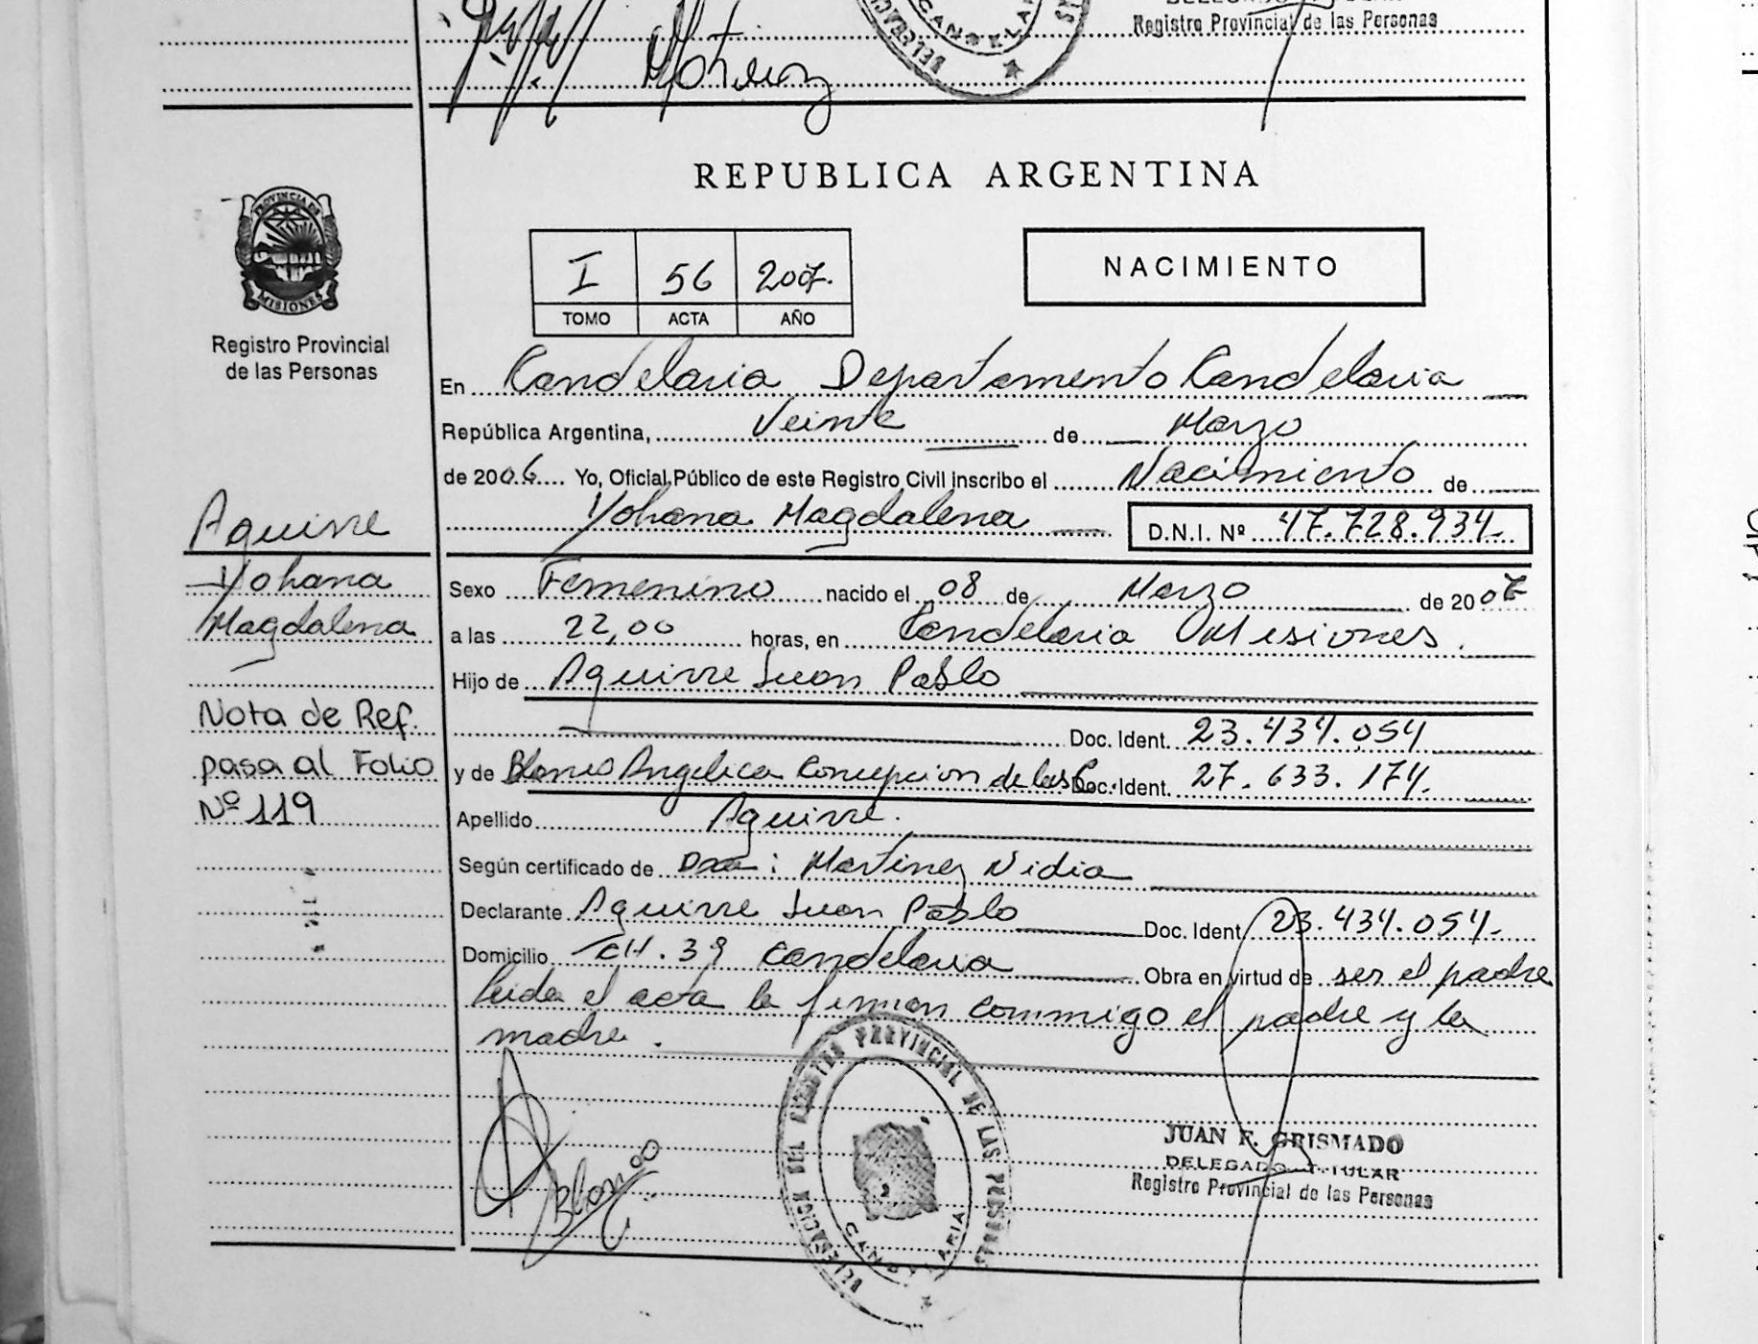 Registro Provincial de las Personas
REPUBLICA ARGENTINA
PROVINCIA DE
MISIONES
Registro Provincial
de las Personas
I 56 2007.
TOMO ACTA AÑO
NACIMIENTO
En Candelaria Departamento Candelaria
República Argentina, Veinte de Marzo
de 2006 Yo, Oficial Público de este Registro Civil Inscribo el Nacimiento de
Yohana Magdalena D.N.I. Nº 47.728.934.
Aguirre
Yohana
Magdalena
Nota de Ref.
pasa al Folio
Nº 119
Sexo Femenino nacido el 08 de Marzo de 2007
a las 22,00 horas, en Candelaria Misiones.
Hijo de Aguirre Juan Pablo
Doc. Ident. 23.434.054
y de Blanco Angelica Concepcion de las C. Doc. Ident. 27.633.174.
Apellido Aguirre.
Según certificado de Dra: Martinez Nidia
Declarante Aguirre Juan Pablo Doc. Ident 23.434.054.
Domicilio CH. 39 Candelaria Obra en virtud de ser el padre
leida el acta la firman conmigo el padre y la
madre.
DELEGACION DEL REGISTRO PROVINCIAL DE LAS PERSONAS
CANDELARIA
Blanco
JUAN F. GRISMADO
DELEGADO TITULAR
Registro Provincial de las Personas